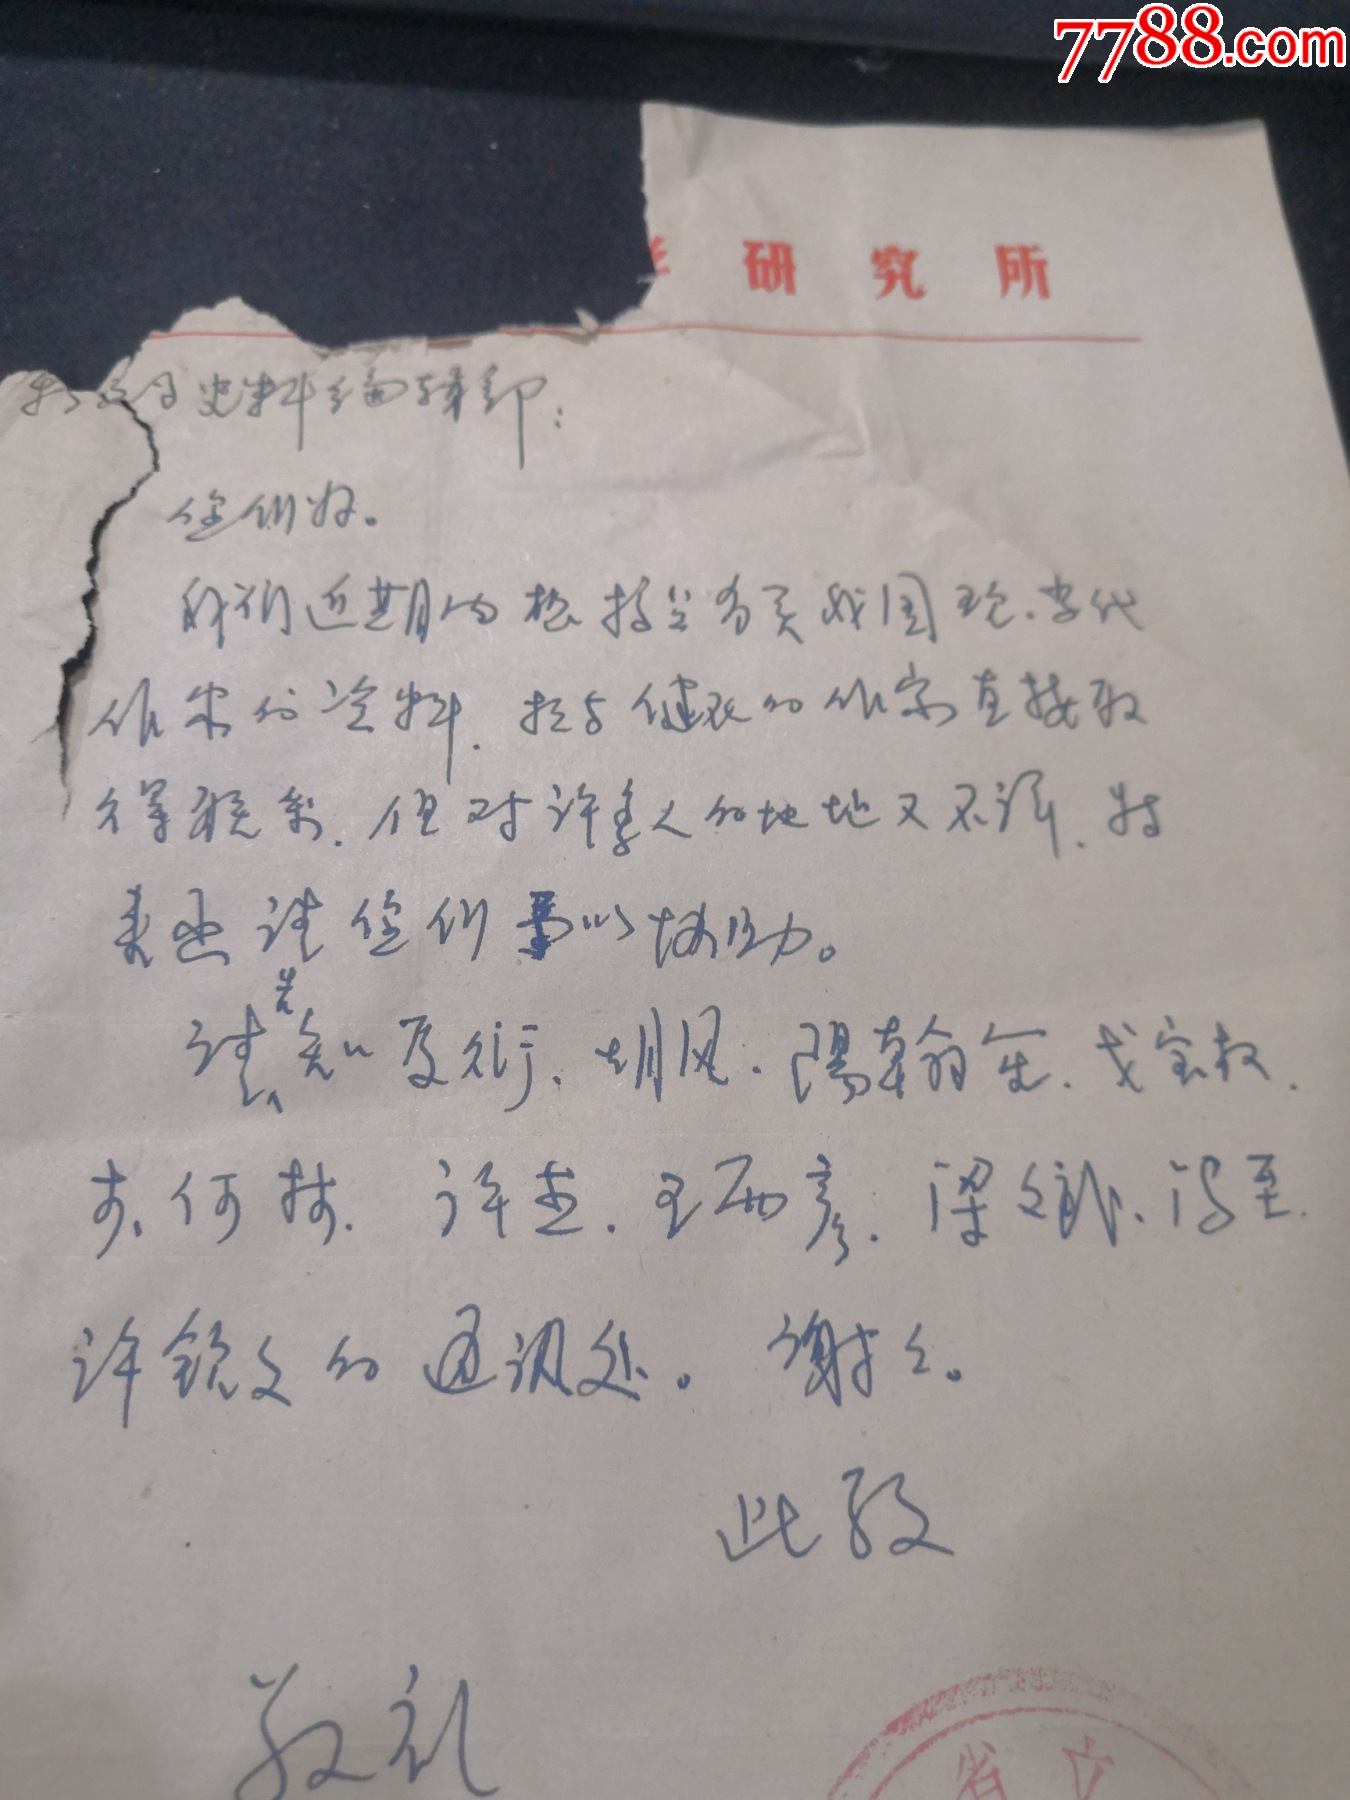 7788.com
研究所
史料编辑部：
您们好。
我们近期内想搜集有关我国现、当代
作家的资料，拟与健在的作家直接取
得联系，但对许多人的地址又不详，特
来函请您们予以协助。
请告知夏衍、胡风、阳翰笙、戈宝权、
李何林、许杰、王西彦、梁文若、冯至、
许钦文的通讯处。谢谢。
此致
敬礼
省